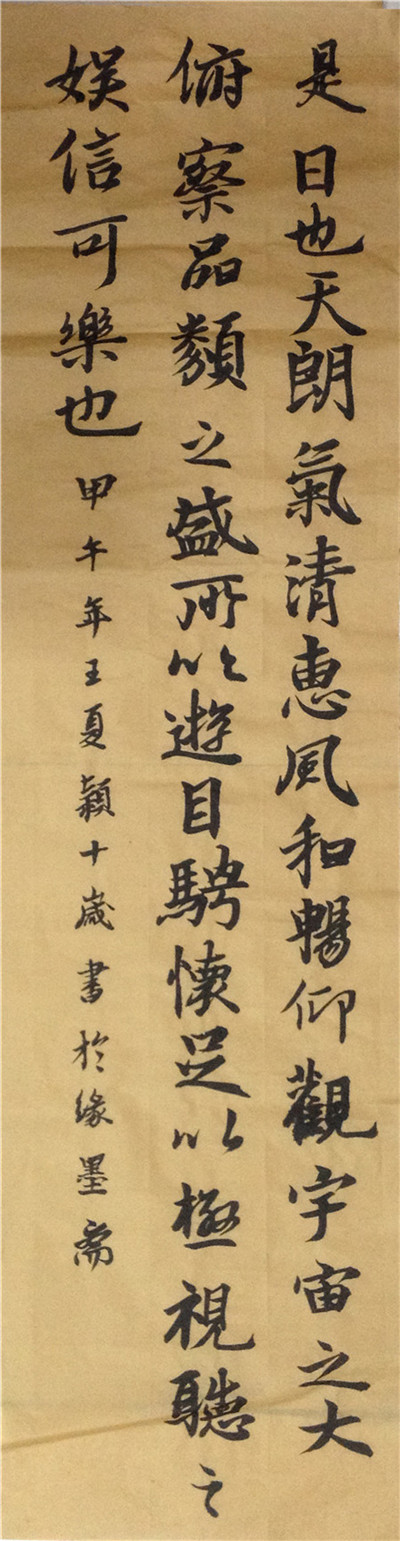 是日也天朗氣清惠風和暢仰觀宇宙之大
俯察品類之盛所以遊目騁懷足以極視聽之
娛信可樂也甲午年王夏穎十歲書於緣墨斋